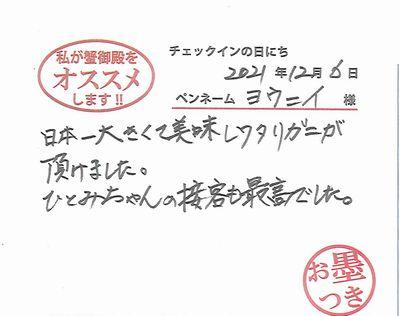 私が蟹御殿を
オススメ
します!!
チェックインの日にち
2021年12月6日
ペンネーム ヨウニイ 様
日本一大きくて美味しワタリガニが
頂けました。
ひとみちゃんの接客も最高でした。
お墨
つき